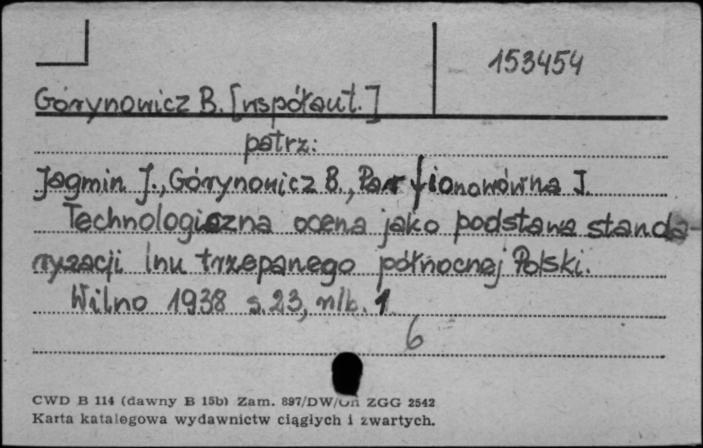 153454
Górynowicz B. [współaut.]
patrz:
Jagmin J., Górynowicz B., Parfionowówna J.
Technologiczna ocena jako podstawa standa-
ryzacji lnu trzepanego północnej Polski.
Wilno 1938 s. 23, nlb. 1
6
CWD B 114 (dawny B 15b) Zam. 897/DW/ ZGG 2542
Karta katalogowa wydawnictw ciągłych i zwartych.